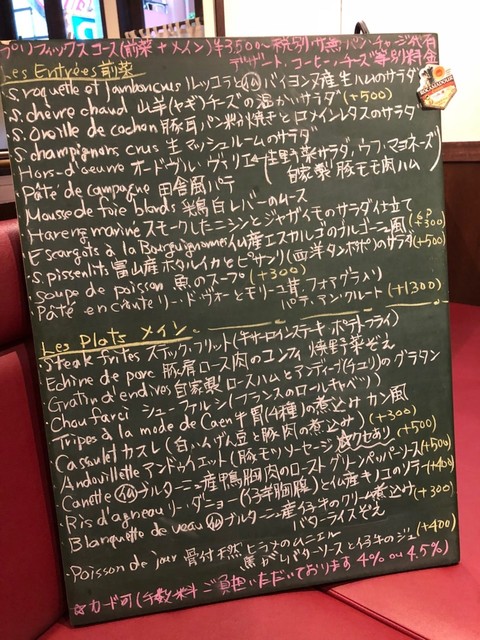 プリフィックスコース(前菜+メイン)¥3,500〜税別 サ無 パン・チャージ代有
デザート、コーヒー、チーズ等別料金
Les Entrées 前菜
S. roquette et jambon cru ルッコラと仏バイヨンヌ産生ハムのサラダ
S. chèvre chaud 山羊(ヤギ)チーズの温かいサラダ (+500)
S. Oreille de cochon 豚耳パン粉焼きとロメインレタスのサラダ
S. champignons crus 生マッシュルームのサラダ
Hors-d'oeuvre オードヴル・ヴァリエ(生野菜サラダ,ウフ・マヨネーズ
自家製 豚モモ肉ハム)
Pâté de campagne 田舎風パテ
Mousse de foie blonds 鶏白レバーのムース
Hareng marine スモークしたニシンとジャガイモのサラダ仕立て
・Escargots à la Bourguignonne 仏産エスカルゴのブルゴーニュ風 6P (+300)
・S. pissenlits 富山産ホタルイカとピサンリ(西洋タンポポ)のサラダ (+500)
・Soupe de poisson 魚のスープ (+300)
・Pâté en croûte リー・ド・ヴォーとモリーユ茸、フォアグラ入り
パテ・アン・クルート (+1300)
Les Plats メイン
・Steak frites ステック・フリット(牛サーロインステーキ ポテトフライ)
・Echine de porc 豚肩ロース肉のコンフィ 焼野菜ぞえ
・Gratin d'endives 自家製ロースハムとアンディーブ(チコリ)のグラタン
・Chou farci シュー・ファルシ(フランスのロールキャベツ)
・Tripes à la mode de Caen 牛胃(4種)の煮込み カン風
・Cassoulet カスレ(白いんげん豆と豚肉の煮込み) (+300)
・Andouillette アンドゥイエット(豚モツソーセージ)☆クセあり (+500)
・Canette 仏ブルターニュ産鴨胸肉のロースト グリーンペッパーソース (+500)
・Ris d'agneau リー・ダニョー(仔羊胸腺)と仏産キノコのソテー (+400)
・Blanquette de veau 仏ブルターニュ産仔牛のクリーム煮込み (+300)
バターライスぞえ
・Poisson de jour 骨付天然ヒラメのムニエル
焦がしバターソースと仔牛のジュ (+400)
☆カード可(手数料ご負担いただいております 4% ou 4.5%)